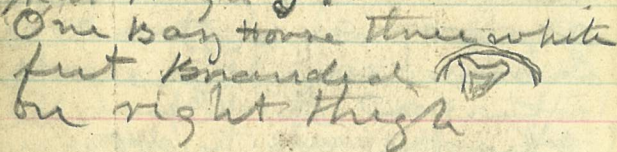 One Bay Horse three white
feet Branded
on right thigh